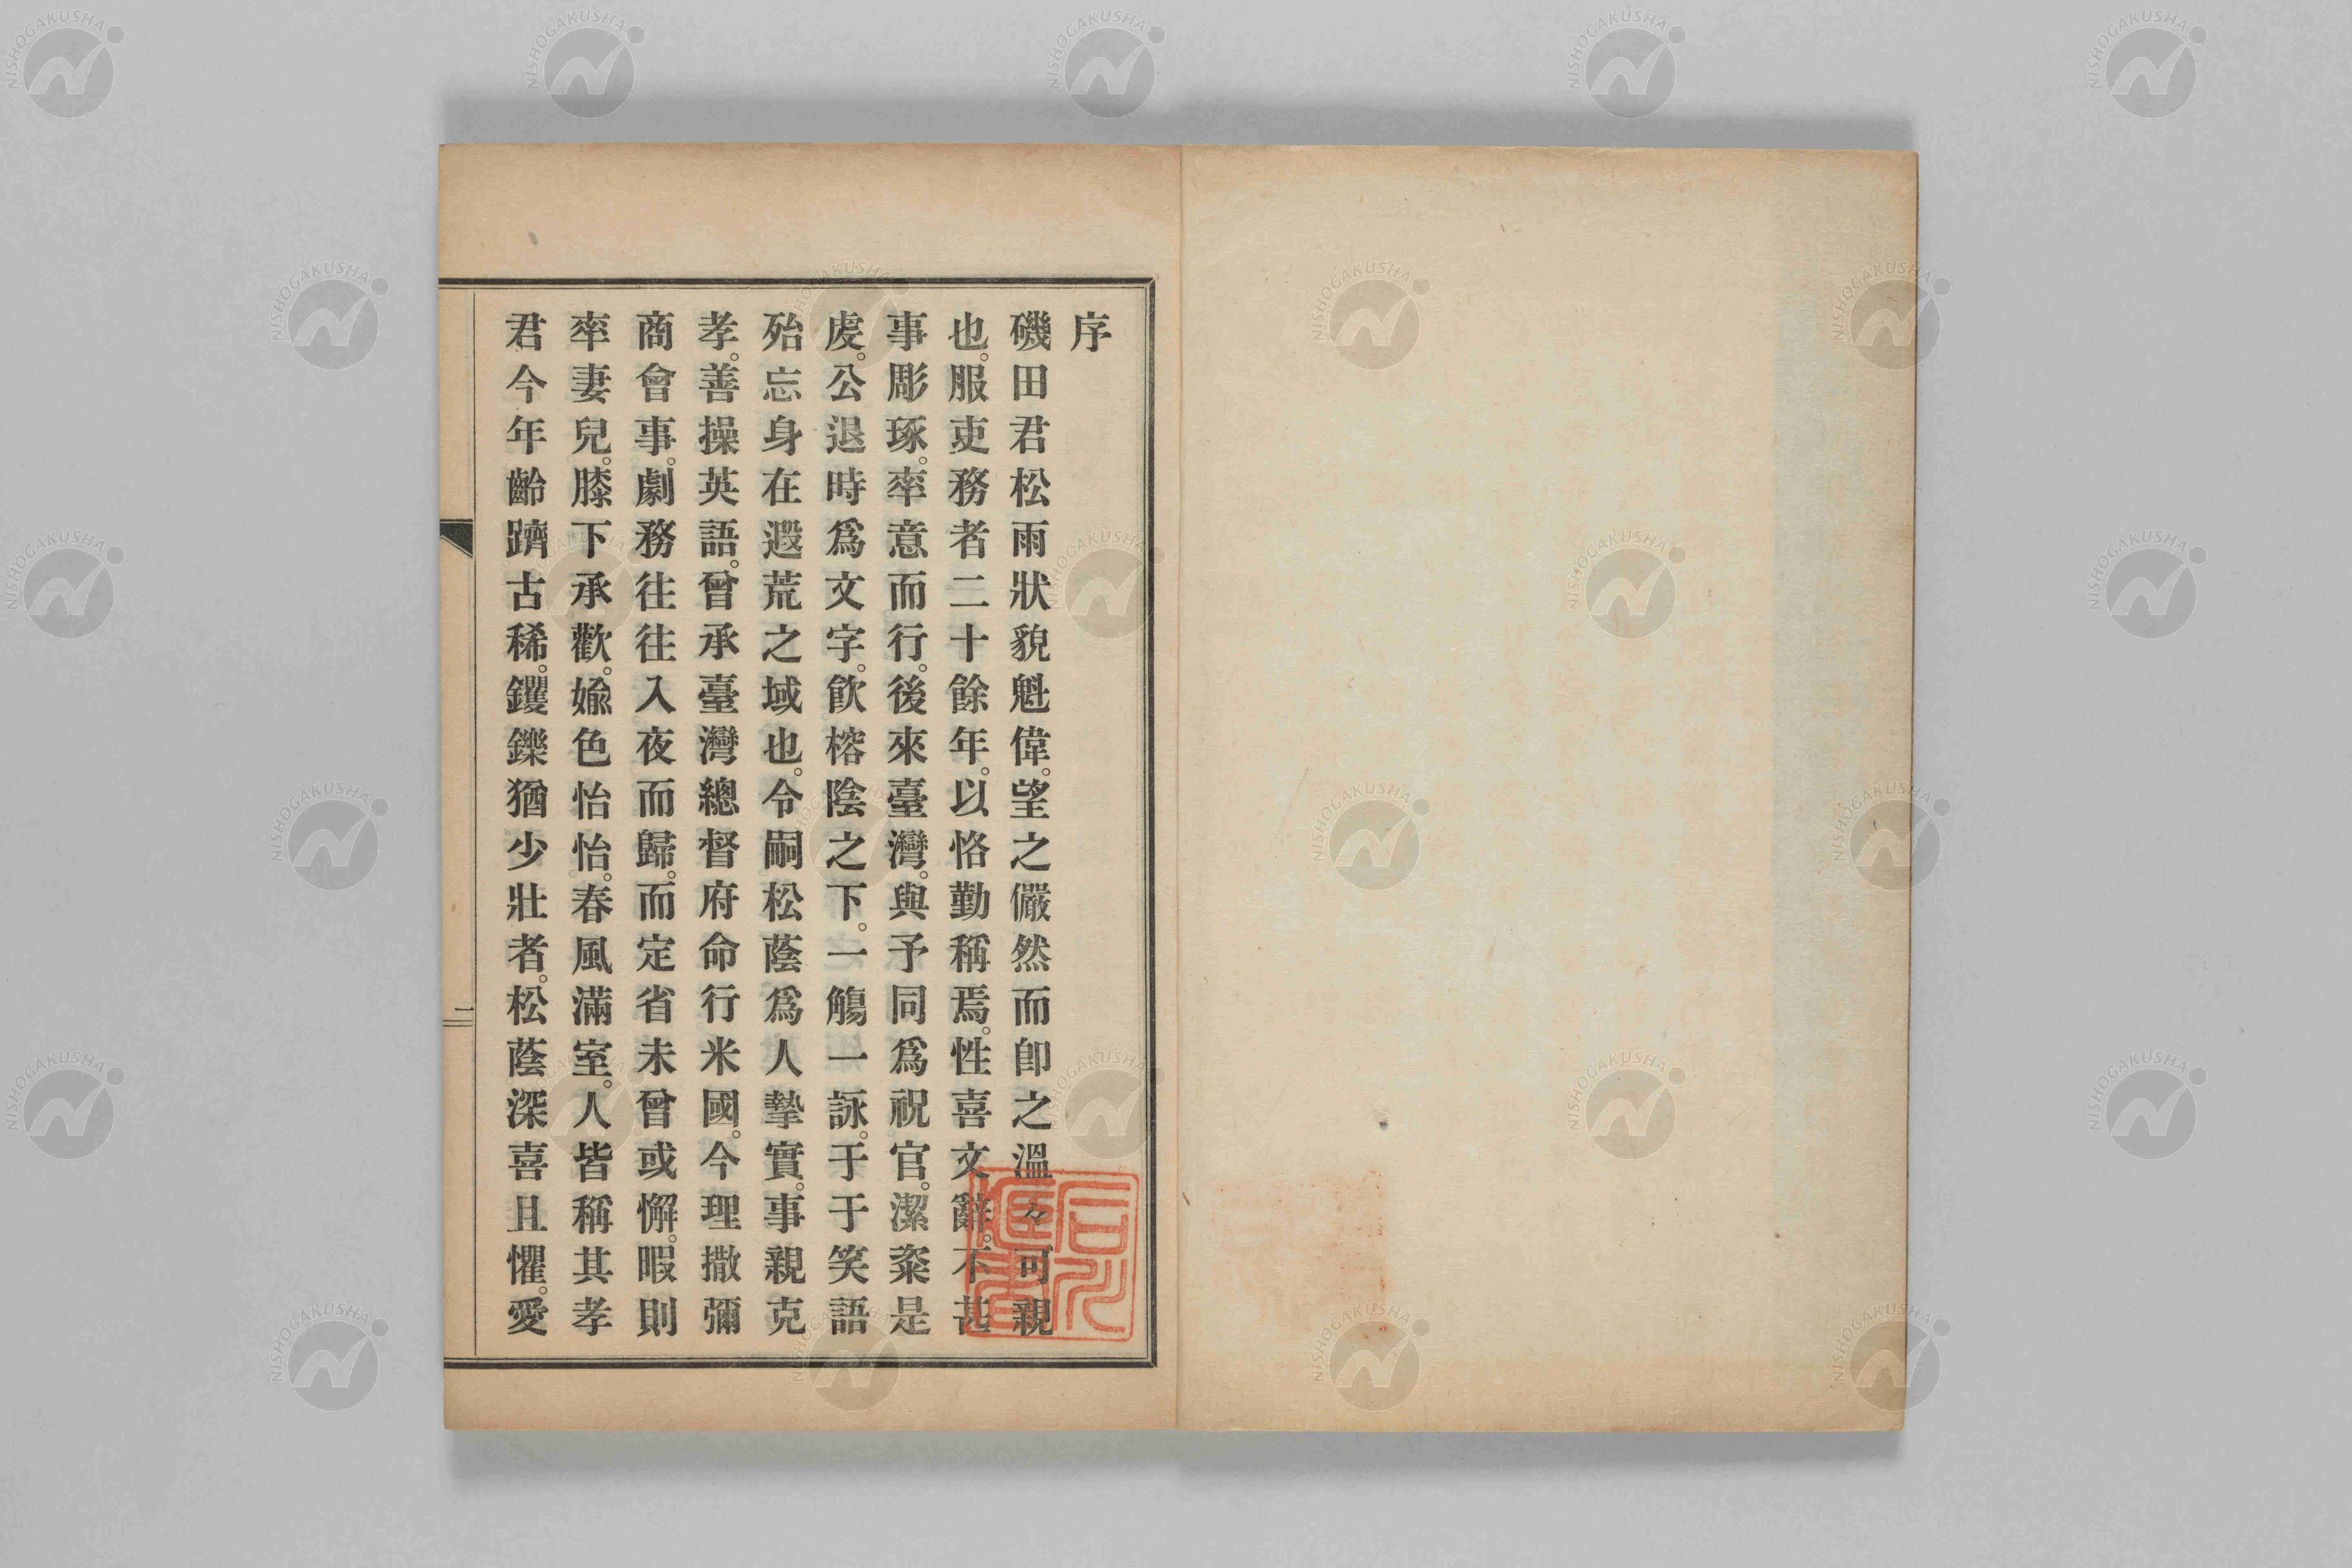 序
磯田君松雨狀貌魁偉。望之儼然而卽之溫々可親
也。服吏務者二十餘年。以恪勤稱焉。性喜文辭。不甚
事彫琢。率意而行。後來臺灣。與予同爲祝官。潔粢是
虔。公退時爲文字。飮榕陰之下。一觴一詠。于于笑語
殆忘身在遐荒之域也。令嗣松蔭爲人摯實。事親克
孝。善操英語。曾承臺灣總督府命行米國。今理撒彌
商會事。劇務往往入夜而歸。而定省未曾或懈。暇則
率妻兒。膝下承歡。婾色怡怡。春風滿室。人皆稱其孝
君今年齡躋古稀。钁鑠猶少壯者。松蔭深喜且懼。愛
一
NISHOGAKUSHA